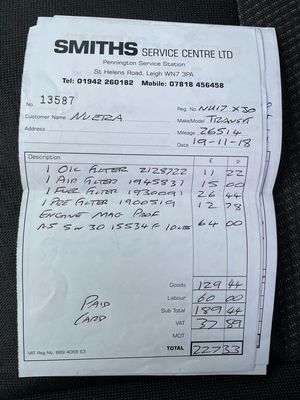 SMITHS SERVICE CENTRE LTD
Pennington Service Station
St Helens Road, Leigh WN7 3PA
Tel: 01942 260182 Mobile: 07818 456458
No. 13587
Reg. No. NU17 XSO
Customer Name NUERA
Make/Model TRANSIT
Address
Mileage 26514
Date 19-11-18
Description £ P
1 OIL FILTER 2128722 11 22
1 AIR FILTER 1945837 15 00
1 FUEL FILTER 1930091 26 44
1 PRE FILTER 1900519 12 78
ENGINE MAG
A5 5W30 15534F 10 64 00
Goods 129 44
Labour 60 00
Sub Total 189 44
VAT 37 89
MOT
TOTAL 227 33
PAID
CARD
VAT Reg No. 889 4068 63